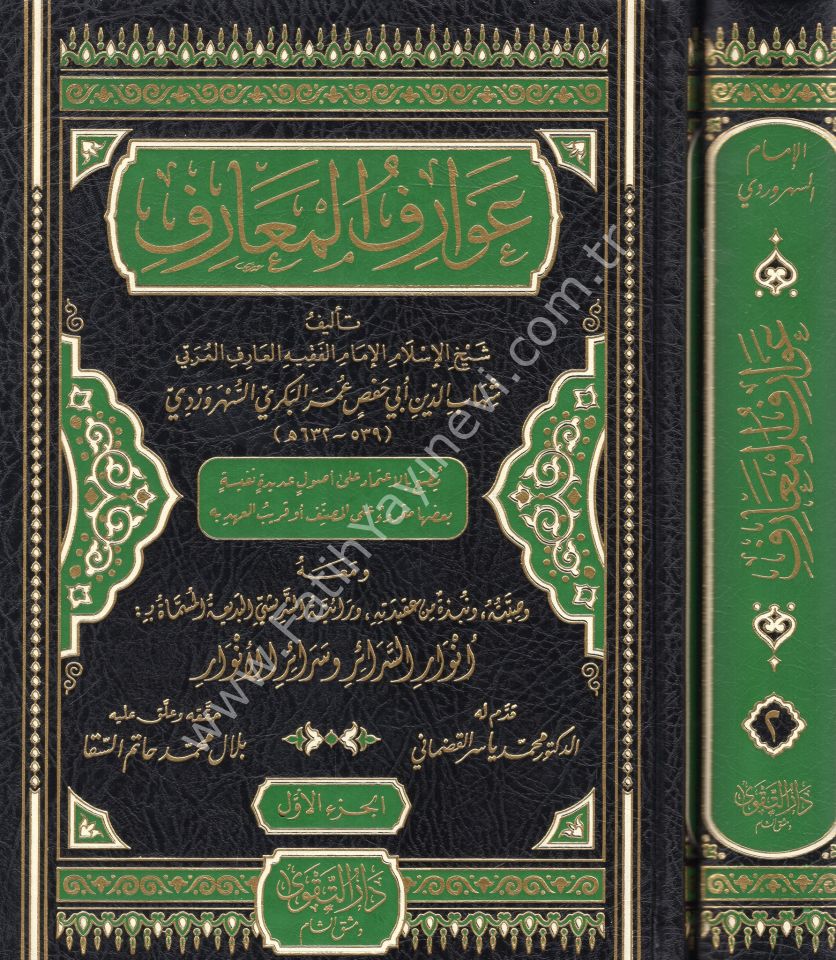 عَوَارِفُ المَعَارِفِ
تأليفُ
شَيْخِ الإسْلَامِ الإمَامِ الفَقِيهِ العَارِفِ المُرَبِّي
شِهَابِ الدِّينِ أَبِي حَفْصٍ عُمَرَ البَكْرِيِّ السُّهْرَوَرْدِيِّ
(٥٣٩ - ٦٣٢ هـ)
الاعتماد على أصول عديدة نفيسة
بعضها مقروء على المصنف أو قريب العهد به
ومعه
وصيته، ونبذة من عقيدته، ورائية الشريشي البديعة المسماة بـ:
أَنْوَارِ السَّرَائِرِ وَسَرَائِرِ الأَنْوَارِ
قدّم له
الدكتور محمد ياسر القضماني
حققه وعلق عليه
بلال محمد حاتم السقا
الجزء الأوّل
دَارُ التَّقْوَى
دمشق الشام
الإمام
السهروردي
عَوَارِفُ المَعَارِفِ
٢
دَارُ التَّقْوَى
دمشق الشام
www.FatihYayinevi.com.tr